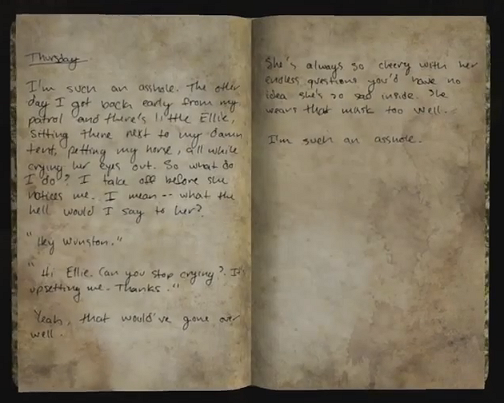 Thursday
I'm such an asshole. The other
day I got back early from my
patrol and there's little Ellie,
sitting there next to my damn
tent, petting my horse, all while
crying her eyes out. So what do
I do? I take off before she
notices me. I mean -- what the
hell would I say to her?
"Hey Winston."
"Hi Ellie. Can you stop crying? It's
upsetting me. Thanks."
Yeah, that would've gone over
well.
She's always so cheery with her
endless questions you'd have no
idea she's so sad inside. She
wears that mask too well.
I'm such an asshole.